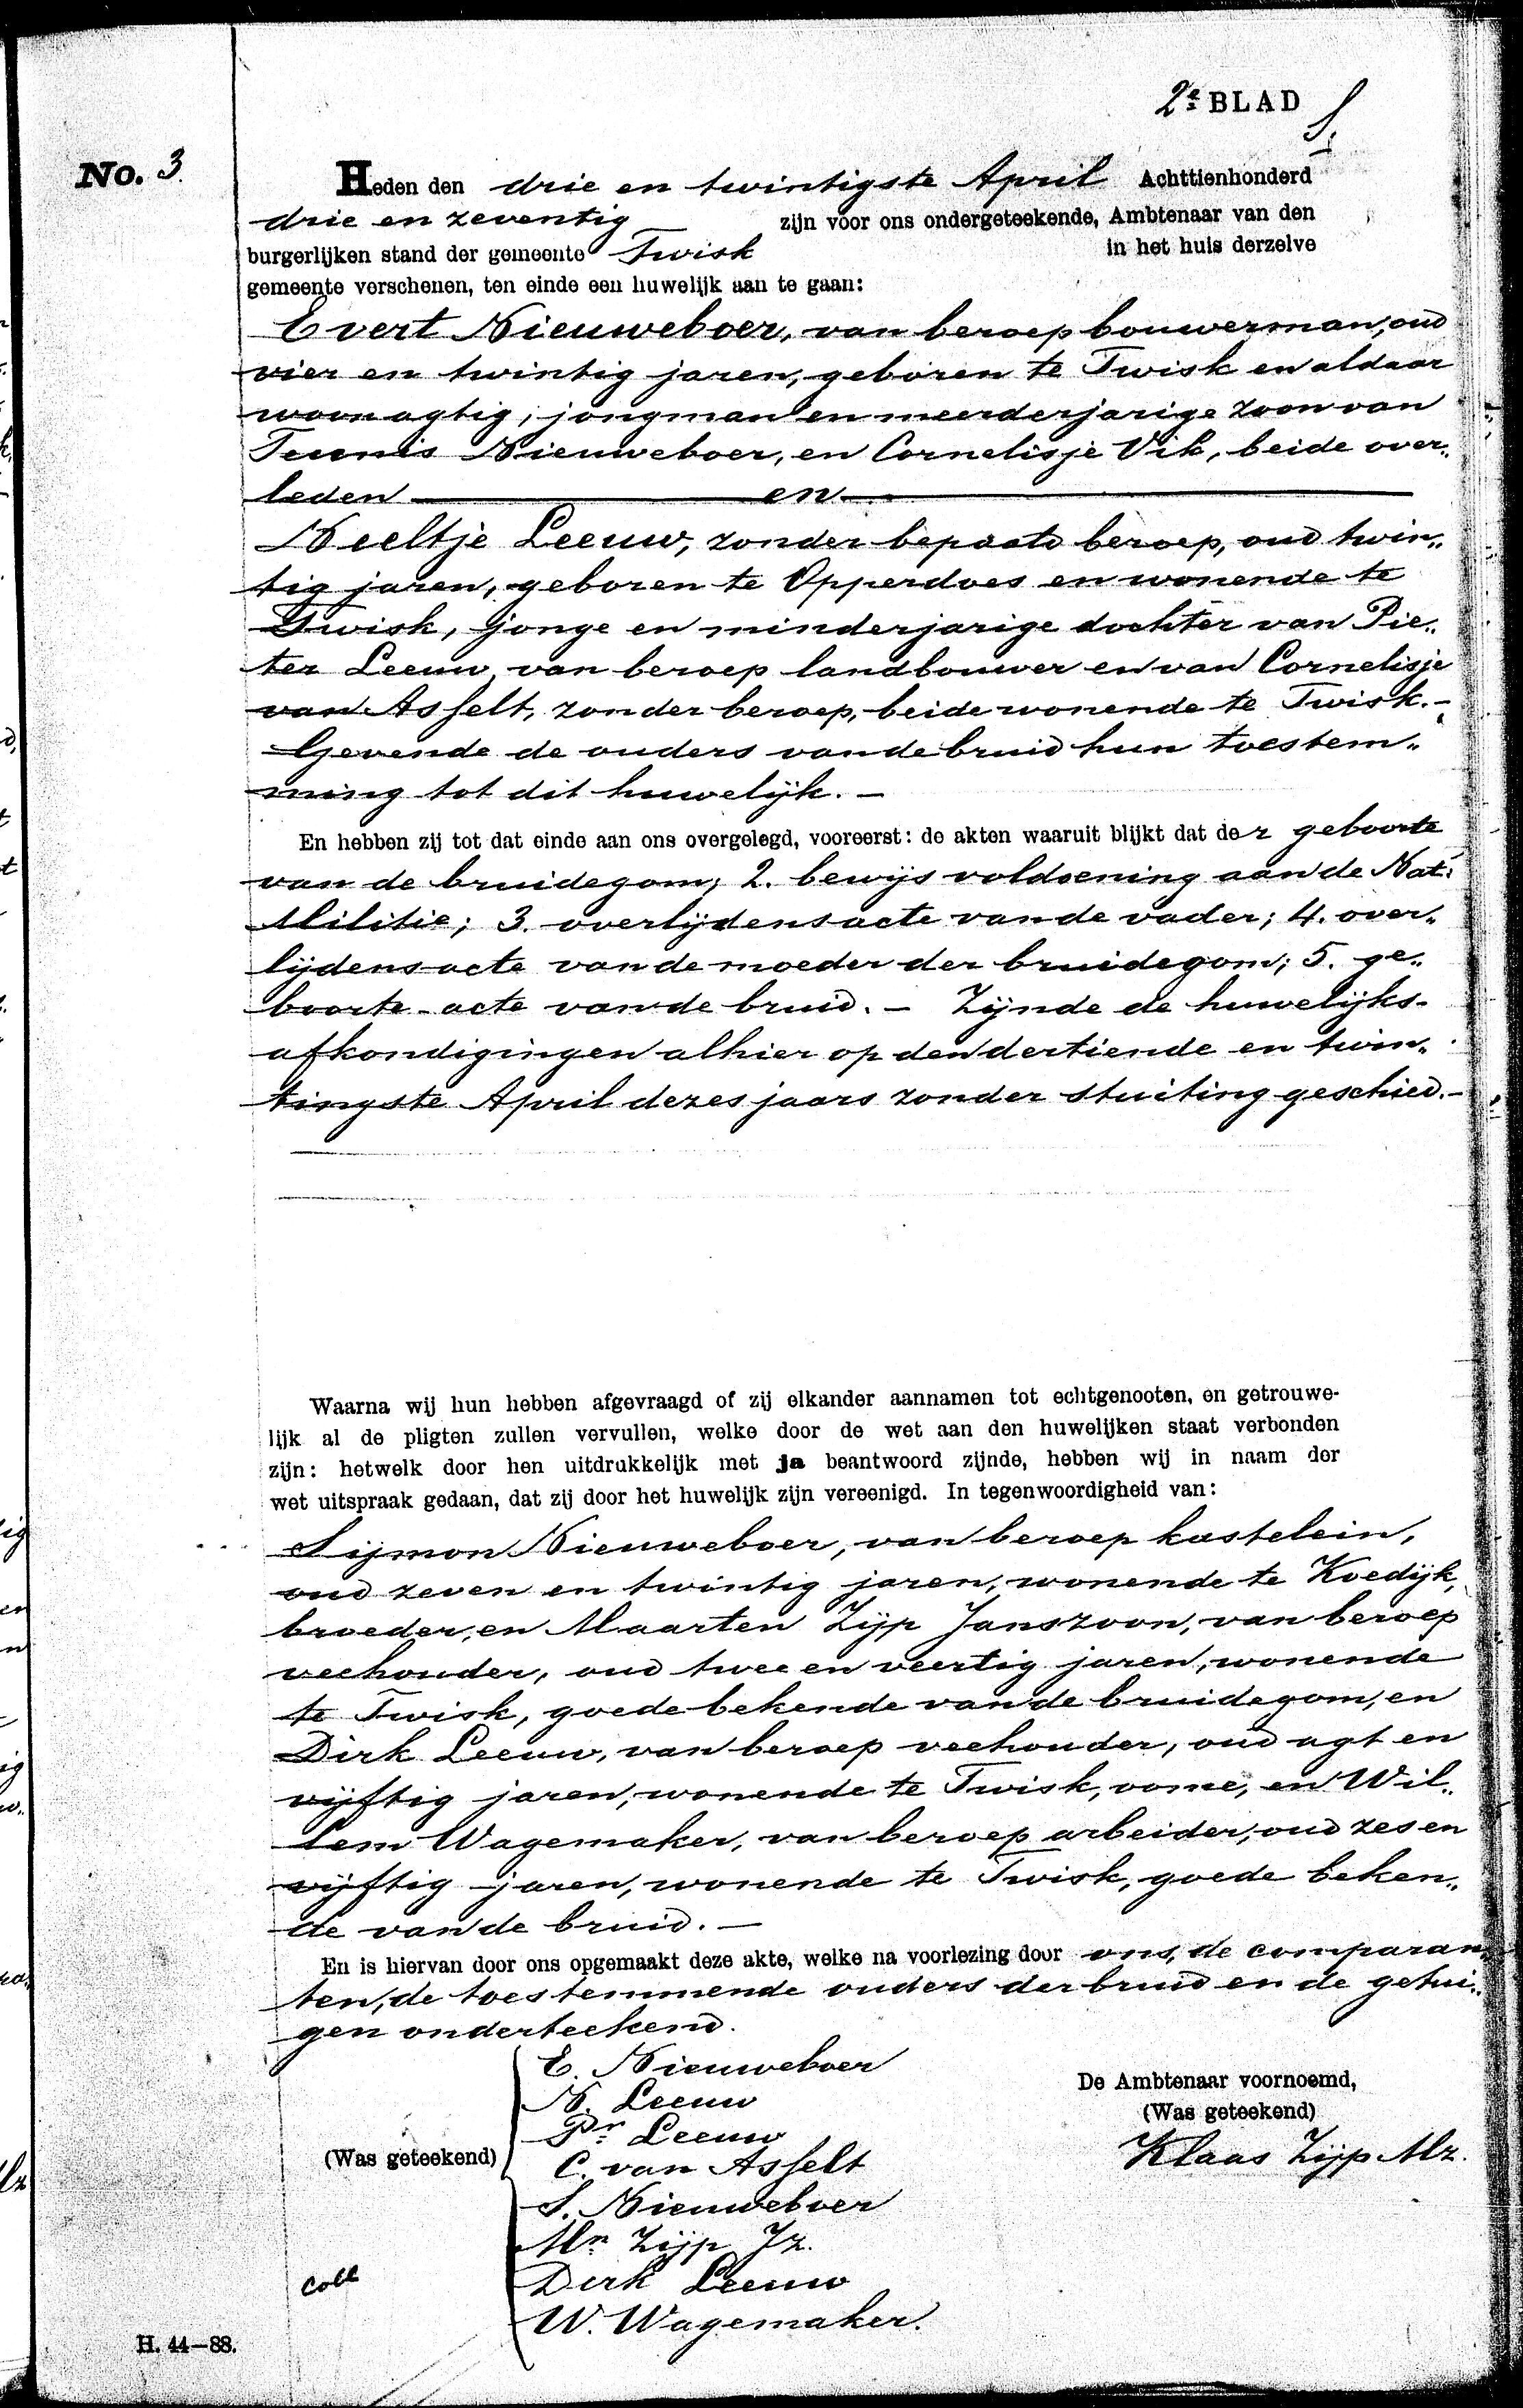 2e BLAD
No. 3.
Heden den drie en twintigste April Achttienhonderd
drie en zeventig zijn voor ons ondergeteekende, Ambtenaar van den
burgerlijken stand der gemeente Twisk in het huis derzelve
gemeente verschenen, ten einde een huwelijk aan te gaan:
Evert Nieuweboer, van beroep bouwerman, oud
vier en twintig jaren, geboren te Twisk en aldaar
woonagtig, jongman en meerderjarige zoon van
Teunis Nieuweboer, en Cornelisje Vik, beide over„
leden en
Neeltje Leeuw, zonder bepaald beroep, oud twin„
tig jaren, geboren te Opperdoes en wonende te
Twisk, jonge en minderjarige dochter van Pie„
ter Leeuw, van beroep landbouwer en van Cornelisje
van Asselt, zonder beroep, beide wonende te Twisk. -
Gevende de ouders van de bruid hun toestem„
ming tot dit huwelijk. -
En hebben zij tot dat einde aan ons overgelegd, vooreerst: de akten waaruit blijkt dat der geboorte
van de bruidegom; 2. bewijs voldoening aan de Nat:
Militie; 3. overlijdensacte van de vader; 4. over„
lijdensacte van de moeder der bruidegom; 5. ge„
boorte-acte van de bruid. - Zijnde de huwelijks-
afkondigingen alhier op den dertiende en twin„
tingste April dezes jaars zonder stuiting geschied. -
Waarna wij hun hebben afgevraagd of zij elkander aannamen tot echtgenooten, en getrouwe-
lijk al de pligten zullen vervullen, welke door de wet aan den huwelijken staat verbonden
zijn: hetwelk door hen uitdrukkelijk met ja beantwoord zijnde, hebben wij in naam der
wet uitspraak gedaan, dat zij door het huwelijk zijn vereenigd. In tegenwoordigheid van:
Sijmon Nieuweboer, van beroep kastelein,
oud zeven en twintig jaren, wonende te Koedijk,
broeder, en Maarten Zijp Janszoon, van beroep
veehouder, oud twee en veertig jaren, wonende
te Twisk, goede bekende van de bruidegom, en
Dirk Leeuw, van beroep veehouder, oud agt en
vijftig jaren, wonende te Twisk, oome, en Wil„
lem Wagemaker, van beroep arbeider, oud zes en
vijftig jaren, wonende te Twisk, goede beken„
de van de bruid. -
En is hiervan door ons opgemaakt deze akte, welke na voorlezing door ons, de comparan„
ten, de toestemmende ouders der bruid en de getui„
gen onderteekend.
E. Nieuweboer
N. Leeuw
De Ambtenaar voornoemd,
Pr. Leeuw
(Was geteekend)
(Was geteekend)
C. van Asselt
Klaas Zijp Mz.
S. Nieuweboer
Mn Zijp Jz.
Coll
Dirk Leeuw
W. Wagemaker.
H. 44-88.